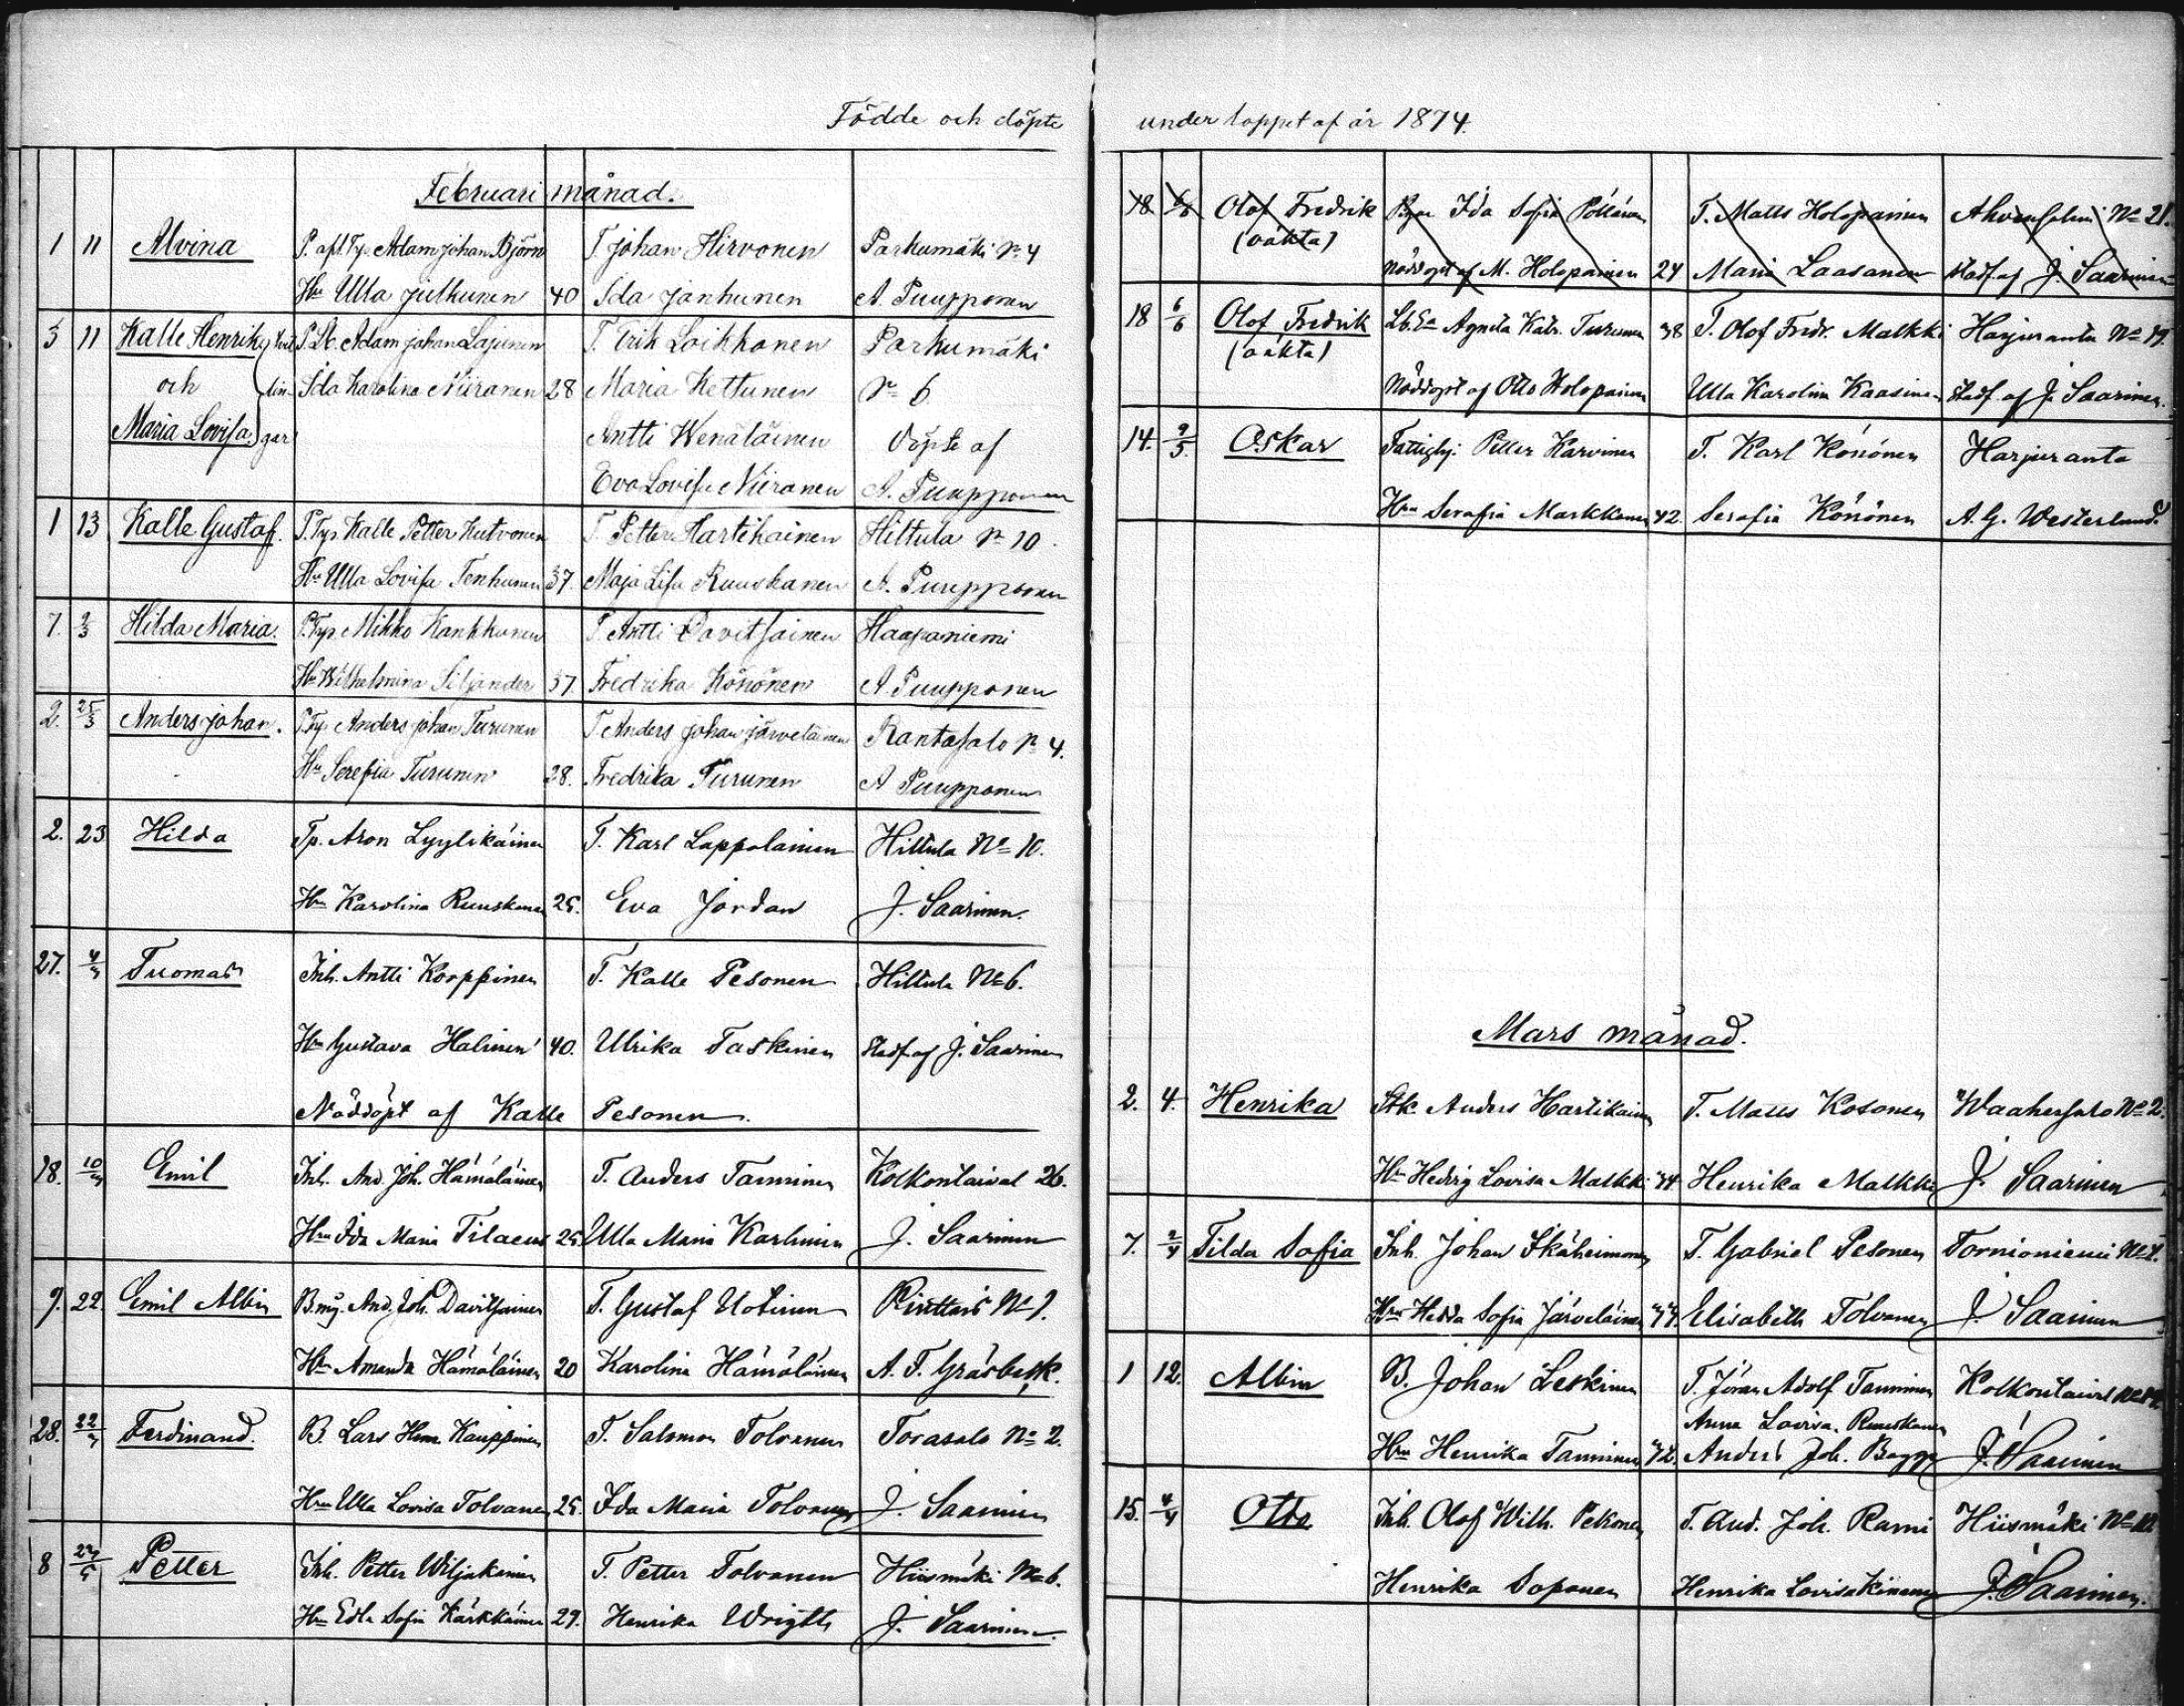 Födde och döpte
Februari månad.
1 11 Alvina P. afl. Tp. Adam Johan Björn T. Johan Hirvonen Parkumäki No 4
Hu Ulla Julkunen 40 Ida Janhunen A. Puupponen
5 11 Kalle Henrik P. Adam Johan Lajunen T. Erik Loikkanen Parkumäki
och Ida Karolina Niiranen 28 Maria Kettunen No 6
Maria Lovisa Antti Wenäläinen Döpte af
Eva Lovisa Niiranen A. Puupponen
1 13 Kalle Gustaf. P. Tp. Kalle Petter Hutvonen T. Petter Hartikainen Hiltula No 10.
Hu Ulla Lovisa Tenhunen 37. Maja Lisa Ruuskanen A. Puupponen
7. 2/3 Hilda Maria. P. Tp. Mikko Kankkunen T. Antti Davitsainen Haapaniemi
Hu Wilhelmina Siljander 37. Fredrika Könönen A. Puupponen
2. 25/3 Anders Johan. P. Tp. Anders Johan Turunen T. Anders Johan Järveläinen Rantasalo No 4.
Hu Serefia Turunen 28. Fredrika Turunen A Puupponen
2. 23 Hilda Tp. Aron Lyylikäinen T. Karl Lappalainen Hiltula No 10.
Hu Karolina Ruuskanen 25. Eva Jordan J. Saarinen.
27. Tuomas Inh. Antti Korppinen T. Kalle Pesonen Hiltula No 6.
Hu Gustava Halinen 40. Ulrika Taskinen stadf. af J. Saarinen
Nöddöpt af Kalle Pesonen.
18. Emil Inh. And. Joh. Hämäläinen T. Anders Tanninen Kolkontaival 26.
Hru Ida Maria Tilaeus 25. Ulla Maria Karhinen J. Saarinen
9. 22. Emil Albin B.mg. And. Joh. Davitsainen T. Gustaf Uotinen Pirttais No 1.
Hru Amanda Hämäläinen 20 Karolina Hämäläinen A. F. Gräsbeck.
28. Ferdinand. B. Lars Henr. Kauppinen T. Salomon Tolvanen Torasalo No 2.
Hru Ulla Lovisa Tolvanen 25. Ida Maria Tolvanen J. Saarinen
8 Petter Inh. Petter Wiljakainen T. Petter Tolvanen Hiismäki No 6.
Hru Edla Sofia Kärkkäinen 29. Henrika Wright J. Saarinen.
under loppet af år 1874.
18 6/6 Olof Fredrik Ida Sofia Pöllänen T. Matts Holopainen Ahvensalmi No 21.
(oäkta) Nöddöpt af M. Holopainen 24 Maria Laasanen stadf. af J. Saarinen
18 6/6 Olof Fredrik Agneta Katr. Turunen 38 T. Olof Fredr. Malkki Harjuranta No 19.
(oäkta) Nöddöpt af Otto Holopainen Ulla Karolina Kaasinen stadf. af J. Saarinen.
14. 9/5. Oskar Fattighj. Petter Karvinen T. Karl Könönen Harjuranta
Hru Serafia Markkanen 42. Serafia Könönen A. G. Westerlund.
Mars månad.
2. 4. Henrika Anders Hartikainen T. Matts Kosonen Waahersalo No 2.
Hru Hedvig Lovisa Malkki 44 Henrika Malkki J. Saarinen
7. 2/4 Tilda Sofia Inh. Johan Ikäheimonen T. Gabriel Pesonen Tornioniemi
Hru Hedda Sofia Järveläinen Elisabeth Tolvanen J. Saarinen
1 12. Albin B. Johan Leskinen T. Göran Adolf Tanninen Kolkontaival
Anna Lovisa Ruuskanen
Hru Henrika Tanninen 42. Anders Joh. Bagge J. Saarinen
15. 4/4 Otto Inh. Olof Wilh. Pekonen T. And. Joh. Rami Hiismäki No 10.
Henrika Soponen Henrika Lovisa Kinnunen J. Saarinen.